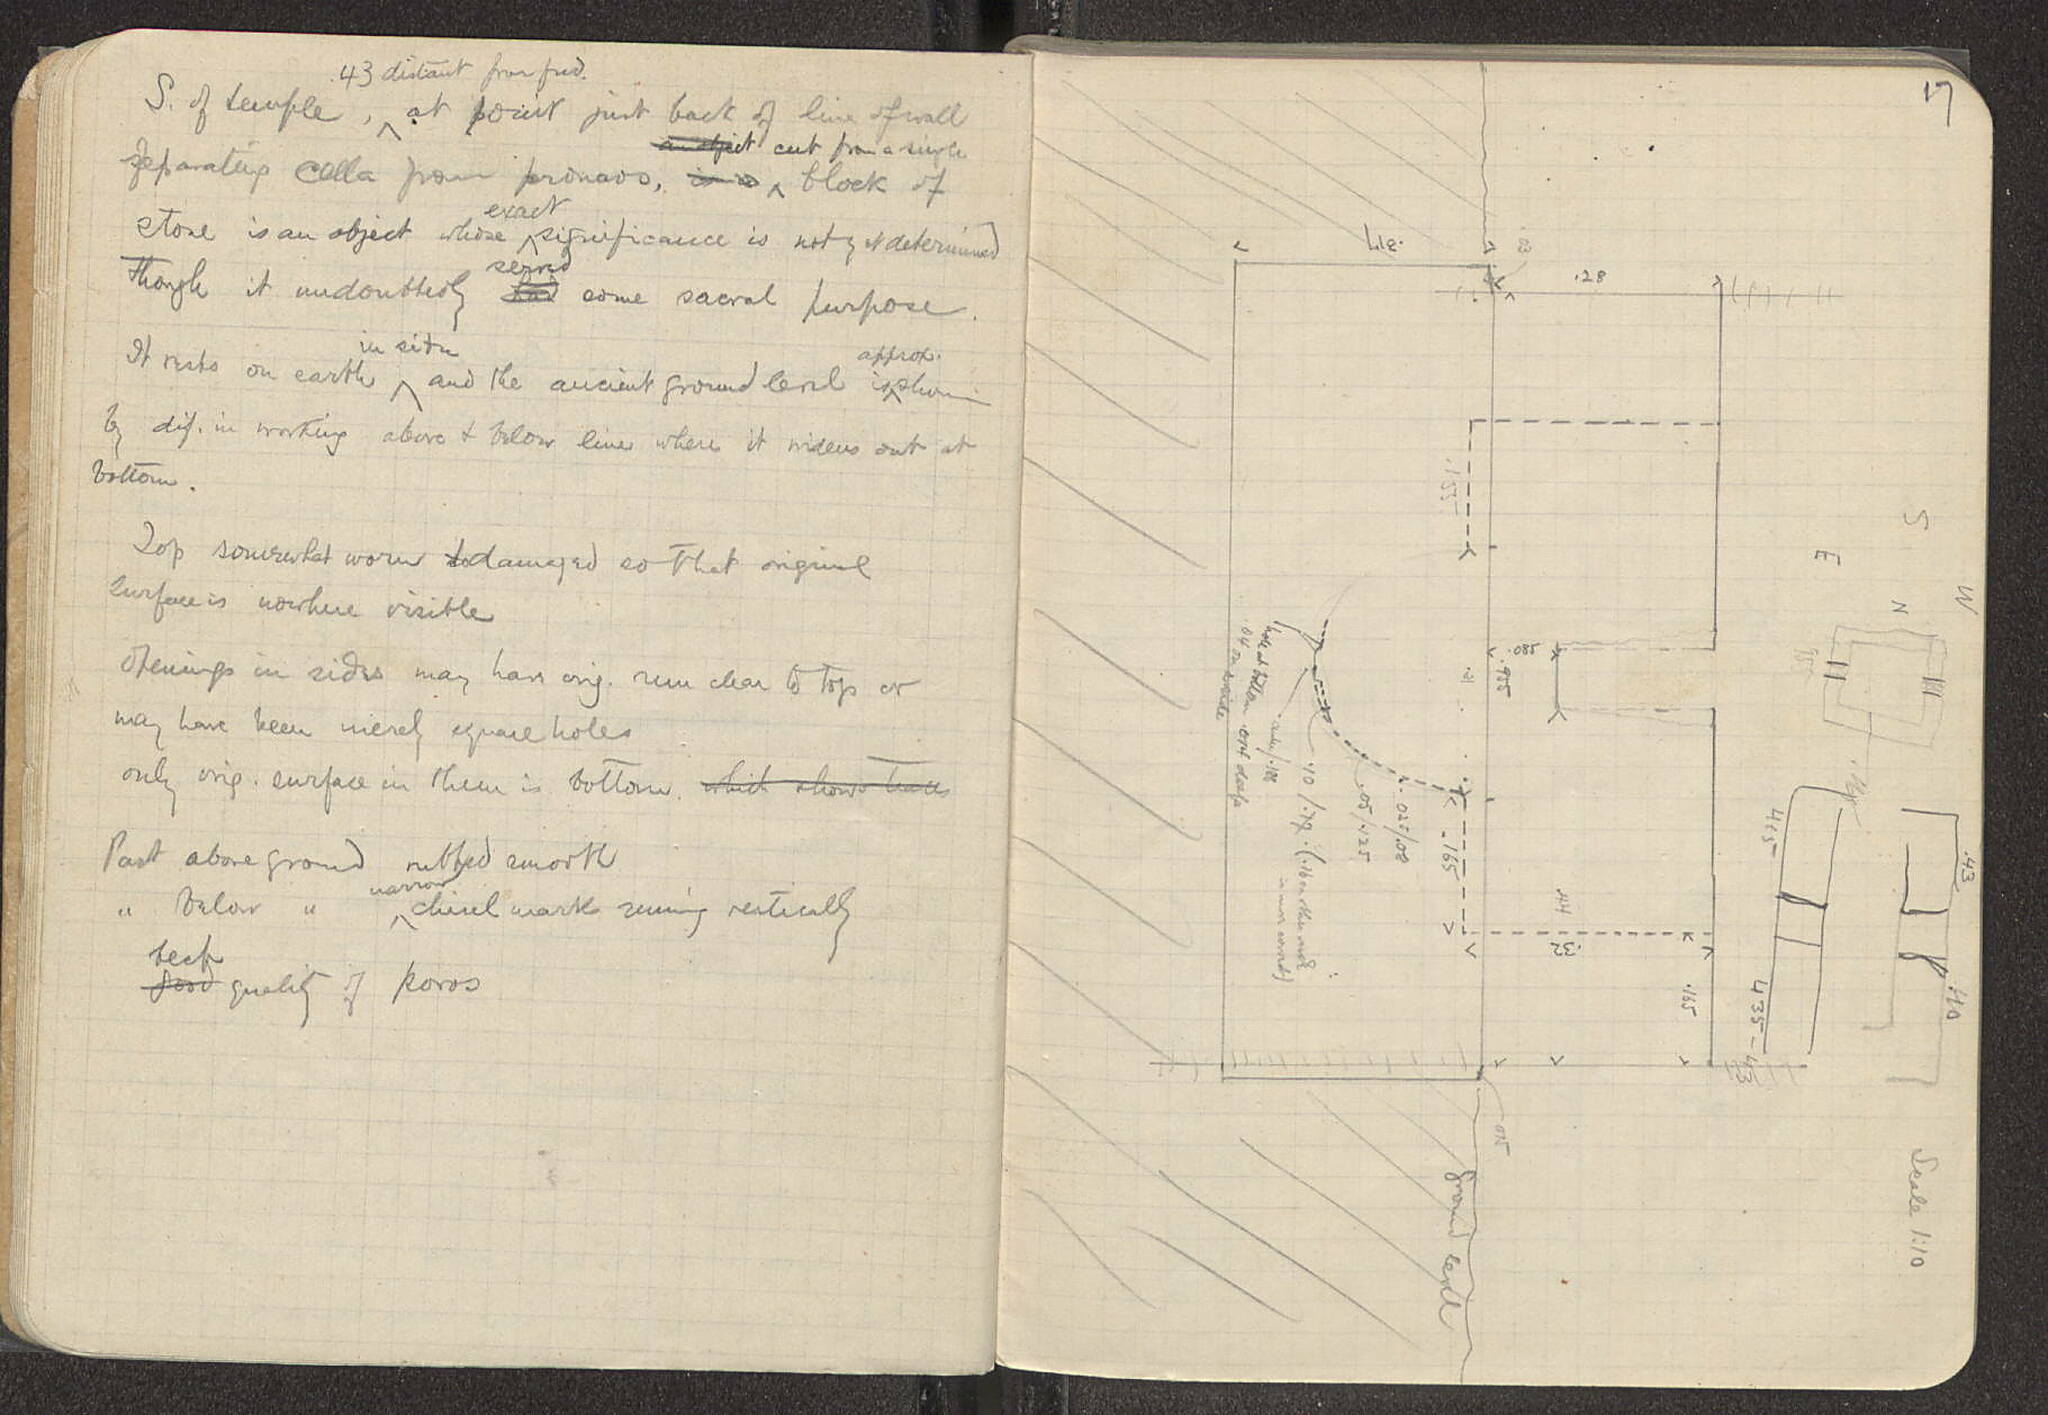 .43 distant from fnd.
S. of temple, ^ at point just back of line of wall
an object cut from a single
separating cella from pronaos, ^ block of
exact
stone is an object whose ^ significance is not yet determined
served
though it undoubtedly had some sacral purpose.
in situ approx.
It rests on earth ^ and the ancient ground level is ^ shown
by dif. in working above + below line where it widens out at
bottom.
Top somewhat worn + damaged so that original
surface is nowhere visible
Openings in sides may have orig. run clear to top or
may have been merely square holes
only orig. surface in them is bottom. which shows traces
Part above ground rubbed smooth
narrow
" below " ^ chisel marks running vertically
best
good quality of poros
17
.317
.03
.28
.155
.085
.955
S
E
N
W
hole at bottom .04 deep
.04 on inside
.10 / .19 (.16 on other side
.05/.125
.025/.08
.165
.44
.32
.165
.015
ground level
.415
.435-.43
.43
.440
Scale 1:10